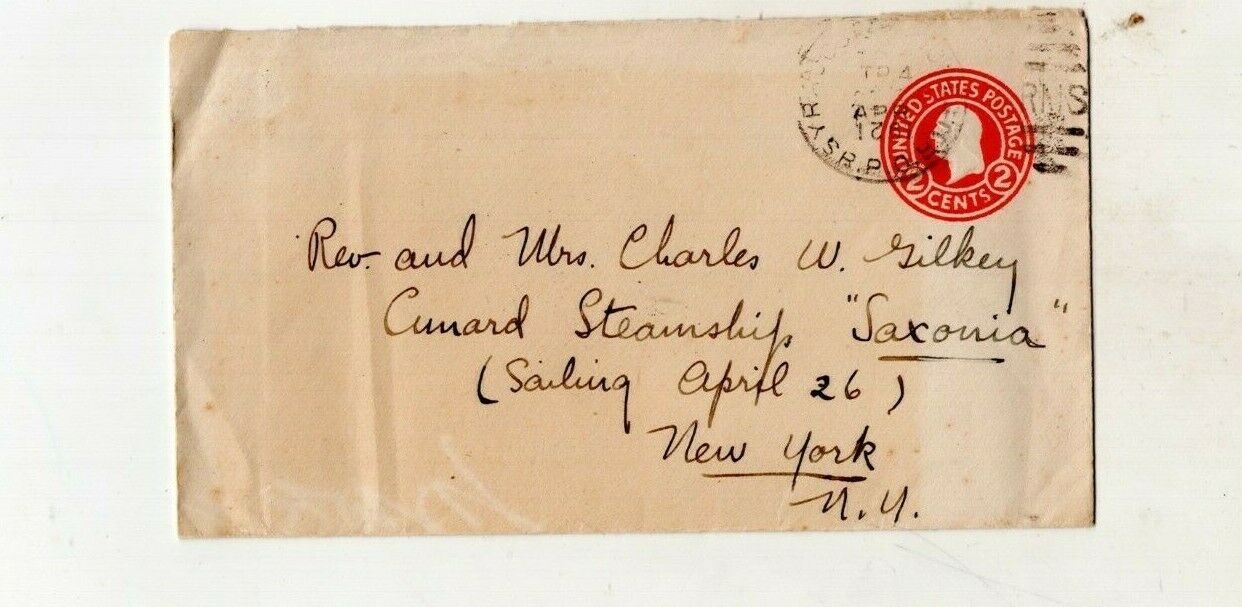 TR 4
APR
RMS
R.P.O.
UNITED STATES POSTAGE
2 CENTS 2
Rev. and Mrs. Charles W. Gilkey
Cunard Steamship "Saxonia"
(Sailing April 26)
New York
N.Y.